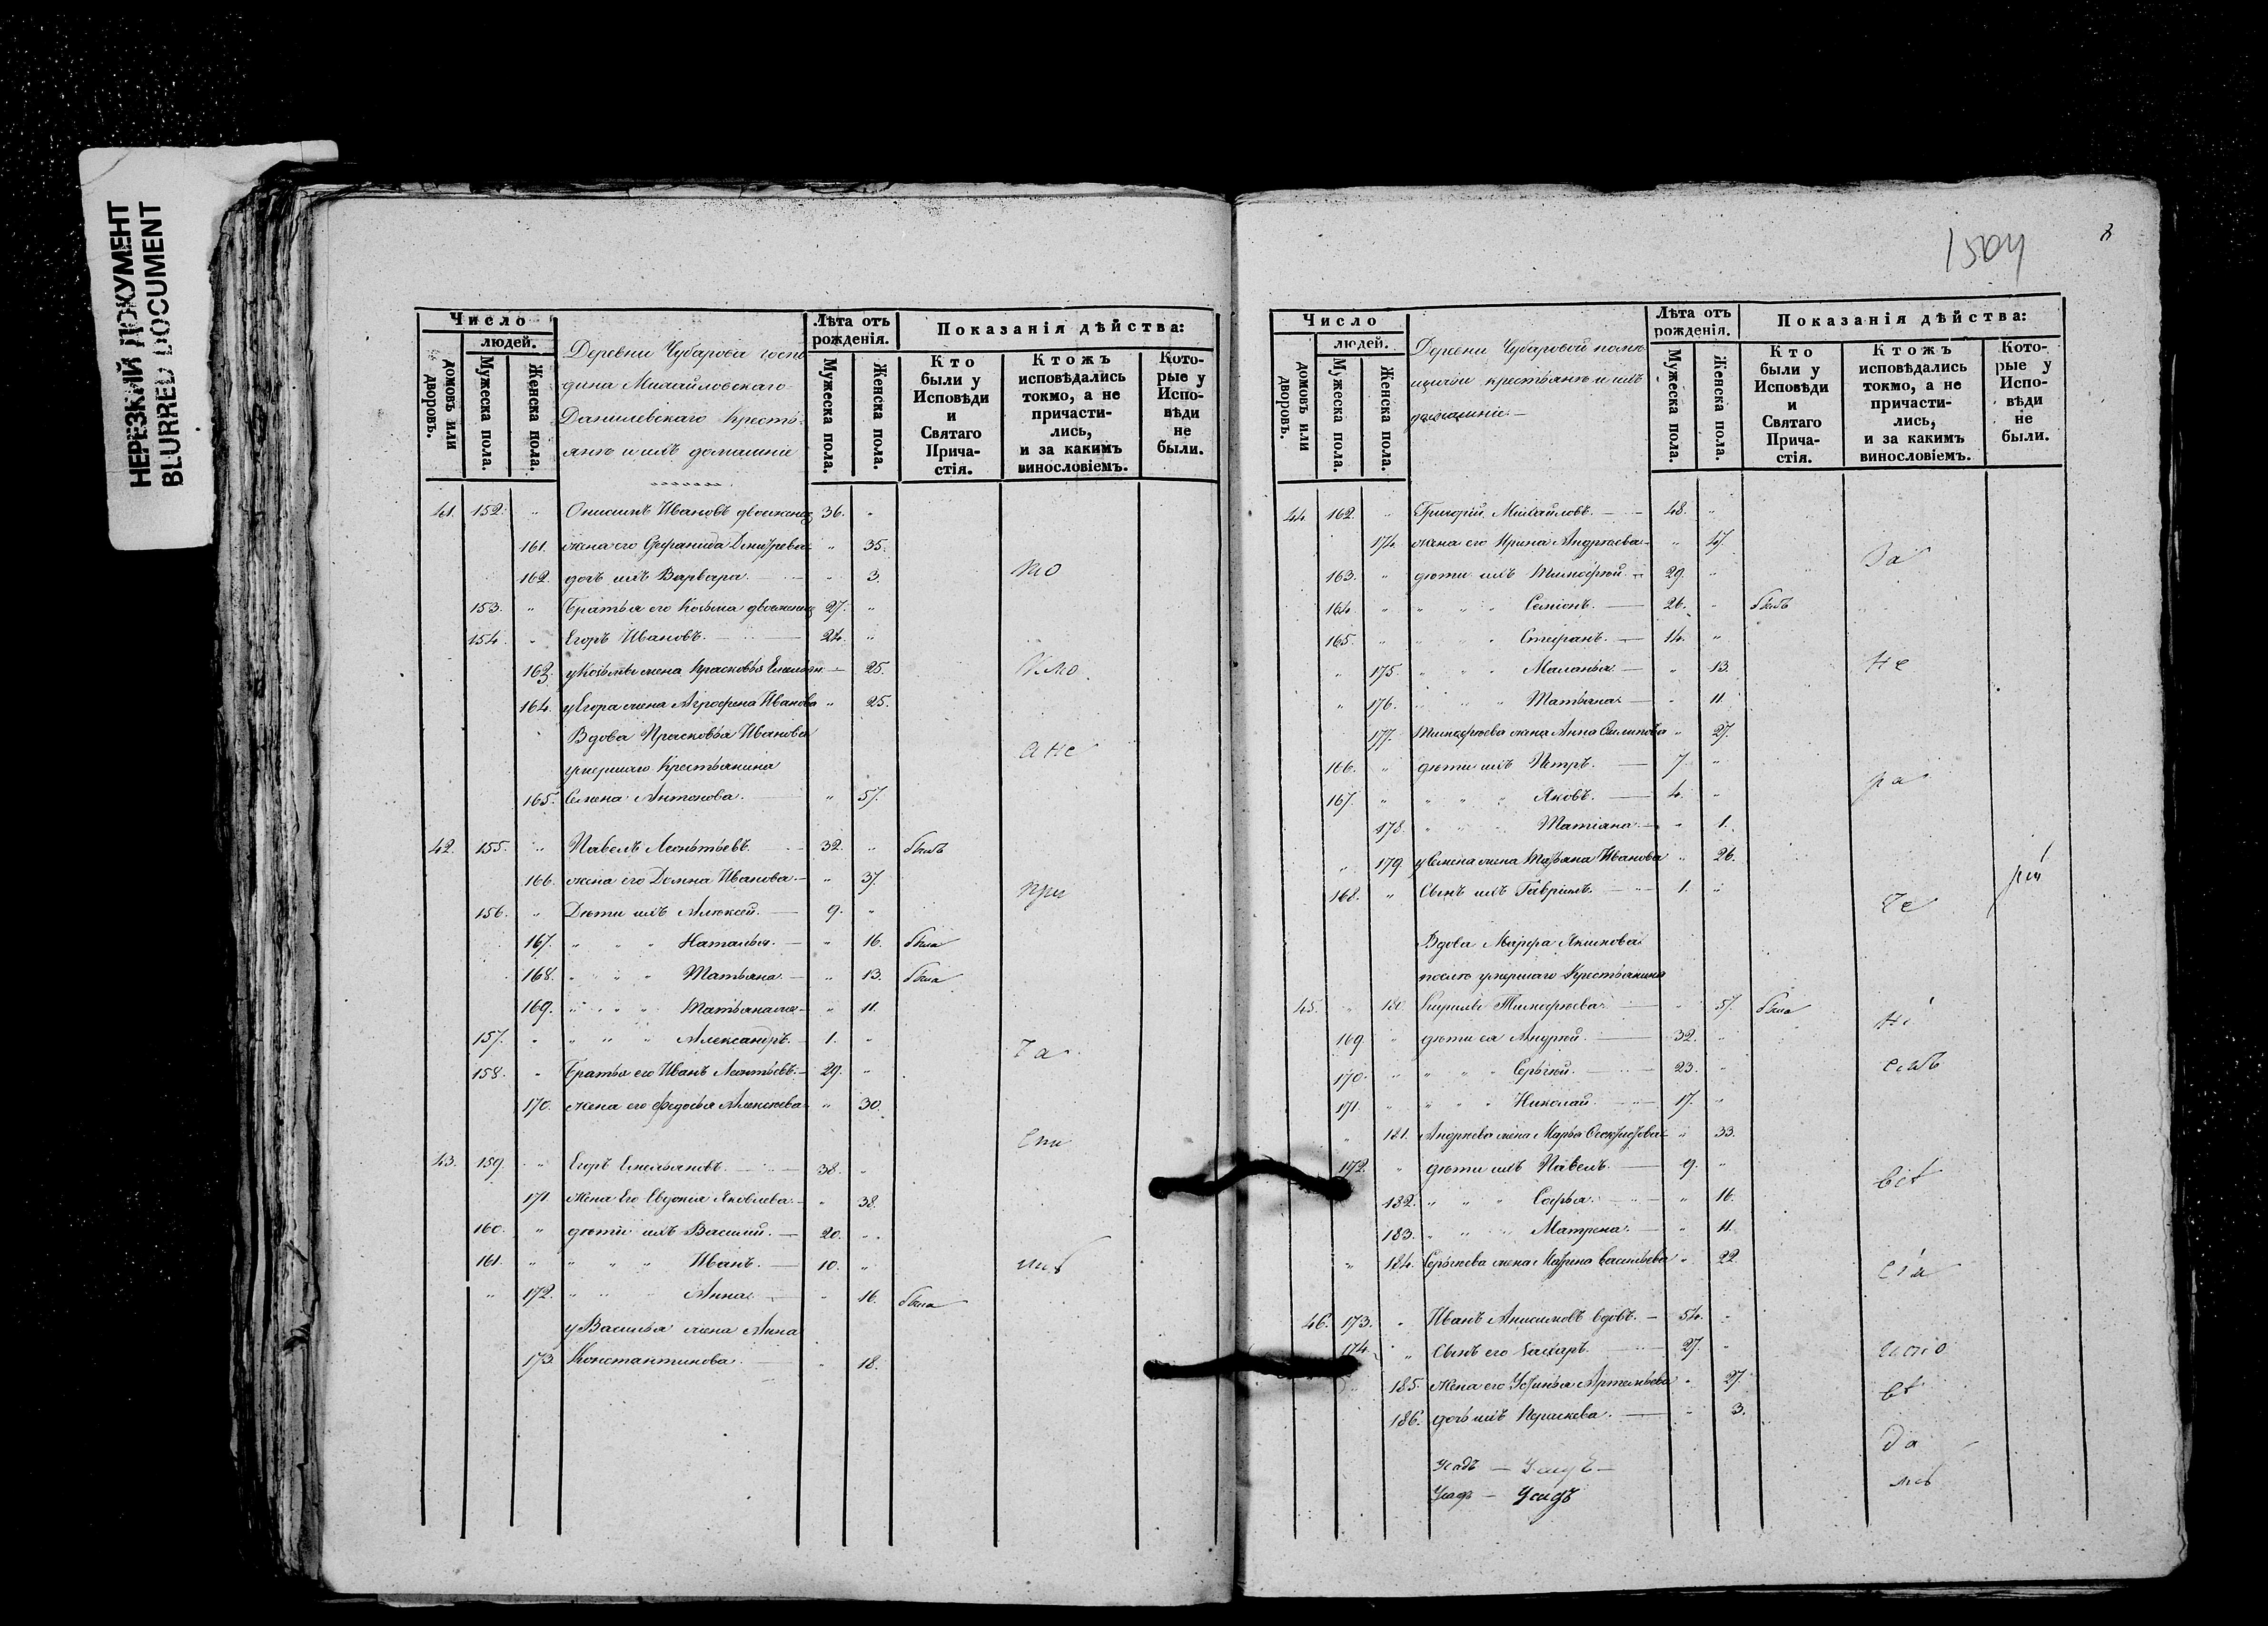 НЕРЕЗКИЙ ДОКУМЕНТ
BLURRED DOCUMENT
Число
людей.
домовъ или дворовъ.
Мужеска пола.
Женска пола.
Деревни Чубарова госпо
дина Михайловскаго
Данилевскаго кресть-
янъ и ихъ домашніе
Лѣта отъ рожденія.
Мужеска пола.
Женска пола.
Показанія дѣйства:
Кто были у Исповѣди и Святаго Прича-стія.
Ктожъ исповѣдались токмо, а не причасти-лись, и за какимъ винословіемъ.
Кото-рые у Испо-вѣди не были.
41. 152. " Онисимъ Ивановъ 36. "
161. жена его Стефанида " 35.
162. дочь ихъ Варвара. " 3.
153. " Братья его Козьма 27. "
154. " Егоръ Ивановъ. 24. "
163. у Козьмы жена Прасковья " 25.
164. у Егора жена Агрофена Иванова " 25.
Вдова Прасковья Иванова
умершаго крестьянина
165. Семена Антонова. " 57.
а не
42. 155. " Павелъ Леонтьевъ. 32. " былъ
166. жена его Домна Иванова. " 37.
при
156. " Дѣти ихъ Алексей. 9. "
167. " " " Наталья. " 16. была
168. " " " Татьяна. " 13. была
169. " " " " 11.
157. " " " " Александръ. 1. "
ча
158. " Братья его Иванъ Леонтьевъ. 29. "
170. жена его Федосья Алексеева " 30.
сти
43. 159. " Егоръ Емельяновъ. 38. "
171. жена его Евдокия Яковлева. " 38.
160. " дѣти ихъ Василий. 20. "
161. " " " " Иванъ. 10. "
" 172. " " " Анна. " 16. была
у Василья жена Анна
173. Константинова. " 18.
1504
Число
людей.
домовъ или дворовъ.
Мужеска пола.
Женска пола.
Деревни Чубаровой
крестьянъ и ихъ
домашніе.
Лѣта отъ рожденія.
Мужеска пола.
Женска пола.
Показанія дѣйства:
Кто были у Исповѣди и Святаго Прича-стія.
Ктожъ исповѣдались токмо, а не причасти-лись, и за какимъ винословіемъ.
Кото-рые у Испо-вѣди не были.
44. 162. " Григорій Михайловъ. 48. "
174. жена его Ирина Андреева " 47.
За
163. " дѣти ихъ Тимофей. 29. "
164. " " " " Семіонъ. 26. " былъ
165. " " " " Стефанъ. 14. "
" 175. " " " Маланья. " 13.
не
" 176. " " " Татьяна " 11.
177. Тимофѣева жена Анна Филипова " 27.
166. " дѣти ихъ Петръ. 7. "
167. " " " " Яковъ. 4. "
ра
178. " " " Татіана " 1.
" 179. у Семена жена Татьяна Иванова " 26.
168. " Сынъ ихъ Гавріилъ. 1. "
че
Вдова Марфа Якимова
после умершаго крестьянина
45. " 180. Кирила Тимофеева. " 57. была
169. " дѣти ея Андрей. 32. "
170. " " " " Сергей. 23. "
171. " " " " Николай 17. "
" 181. Андреева жена Марья " 33.
172. " дѣти ихъ Павелъ. 9. "
182. " " " Софья. " 16.
183. " " " Матрена. " 11.
" 184. Сергеева жена Марина Васильева " 22.
46. 173. " Иванъ Анисимовъ вдовъ. 54. "
174. " Сынъ его Захаръ 27. "
185. жена его Устинья Артемьева " 27.
186. дочь ихъ Параскева. " 3.
да